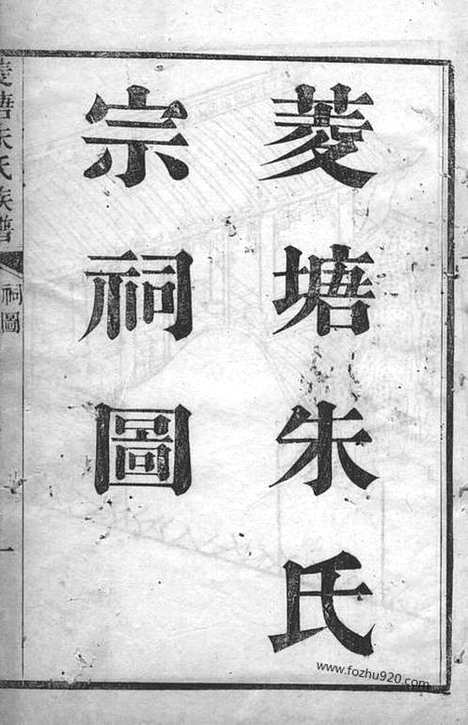 菱塘朱氏
宗祠圖
菱塘朱氏族譜
祠圖
一
www.fozhu920.com